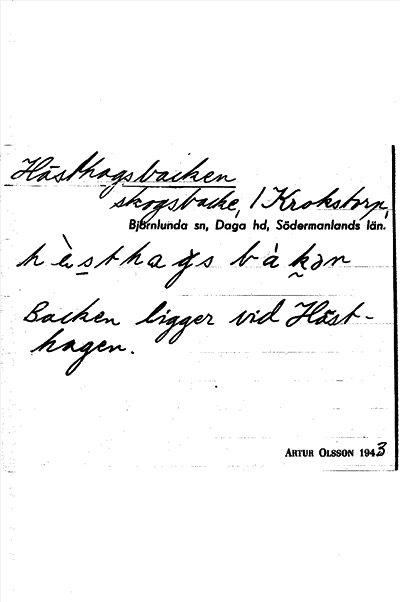 Hästhagsbacken
skogsbacke, / Krokstorp,
Björnlunda sn, Daga hd, Södermanlands län.
hὲsthags bàkən
Backen ligger vid Häst-
hagen.
ARTUR OLSSON 1943